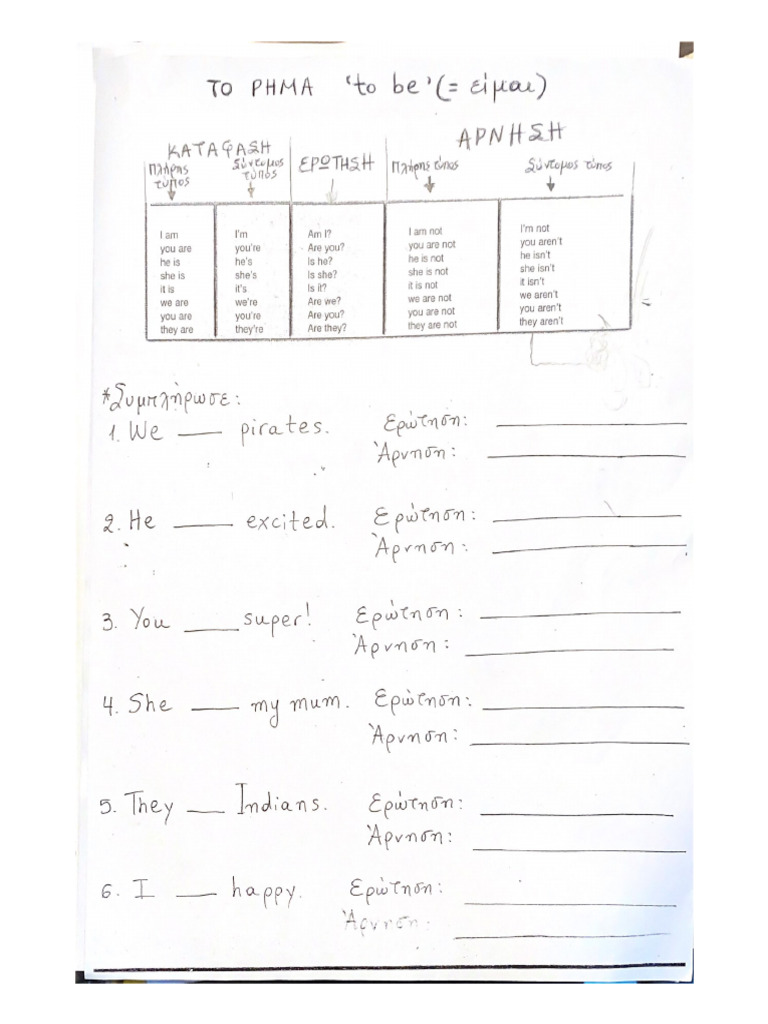 ΤΟ ΡΗΜΑ 'to be' (= είμαι)
ΚΑΤΑΦΑΣΗ ΑΡΝΗΣΗ
Πλήρης τύπος Σύντομος τύπος ΕΡΩΤΗΣΗ Πλήρης τύπος Σύντομος τύπος
I am I'm Am I? I am not I'm not
you are you're Are you? you are not you aren't
he is he's Is he? he is not he isn't
she is she's Is she? she is not she isn't
it is it's Is it? it is not it isn't
we are we're Are we? we are not we aren't
you are you're Are you? you are not you aren't
they are they're Are they? they are not they aren't
*Συμπλήρωσε:
1. We ___ pirates. Ερώτηση: ___
Άρνηση: ___
2. He ___ excited. Ερώτηση: ___
Άρνηση: ___
3. You ___ super! Ερώτηση: ___
Άρνηση: ___
4. She ___ my mum. Ερώτηση: ___
Άρνηση: ___
5. They ___ Indians. Ερώτηση: ___
Άρνηση: ___
6. I ___ happy. Ερώτηση: ___
Άρνηση: ___